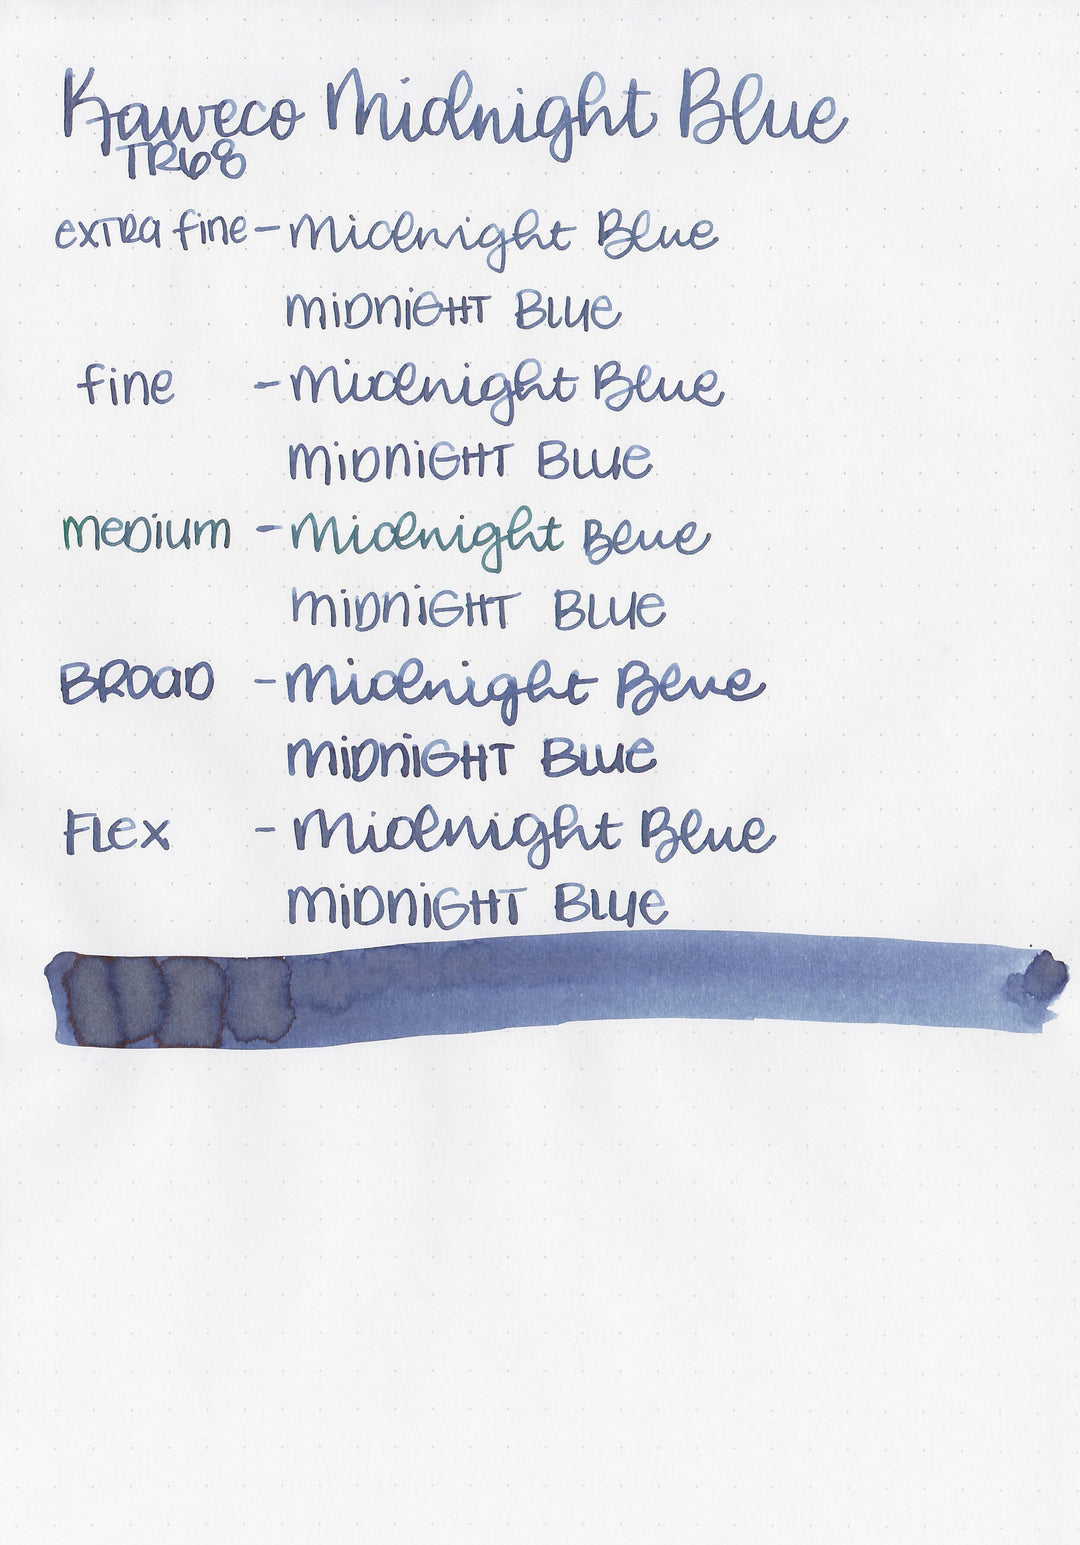 Kaweco Midnight Blue
TR68
extra fine - Midnight Blue
MIDNIGHT BLUE
fine - Midnight Blue
MIDNIGHT BLUE
medium - Midnight Blue
MIDNIGHT BLUE
BROAD - Midnight Blue
MIDNIGHT BLUE
FLex - Midnight Blue
MIDNIGHT BLUE